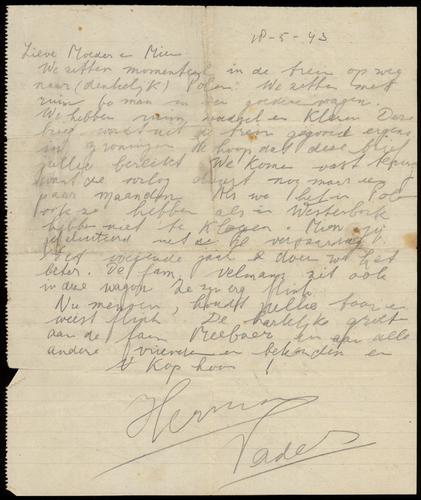 18-5-43
Lieve Moeder en Mien
We zitten momenteel in de trein op weg
naar (denkelijk) Polen. We zitten met
ruim 60 man in een goederen wagen.
We hebben ruim voedsel en kleren. Deze
brief wordt uit de trein gegooid ergens
in Groningen. Ik hoop dat deze brief
jullie bereikt. We komen vast terug
want de oorlog duurt nog maar een
paar maanden. Als we het in Polen
ook zo hebben als in Westerbork
hebben niet te klagen. Mien jij
gefeliciteerd met de verjaardag.
Het volgende jaar doen we het
beter. De fam. Velmans zit ook
in deze wagon. Ze zijn erg flink.
Nu mensen, houdt jullie taai en
weest flink. De hartelijke groeten
aan de fam Meeboer en aan alle
andere vrienden en bekenden en
't Kop hoor !
Herman
Vader